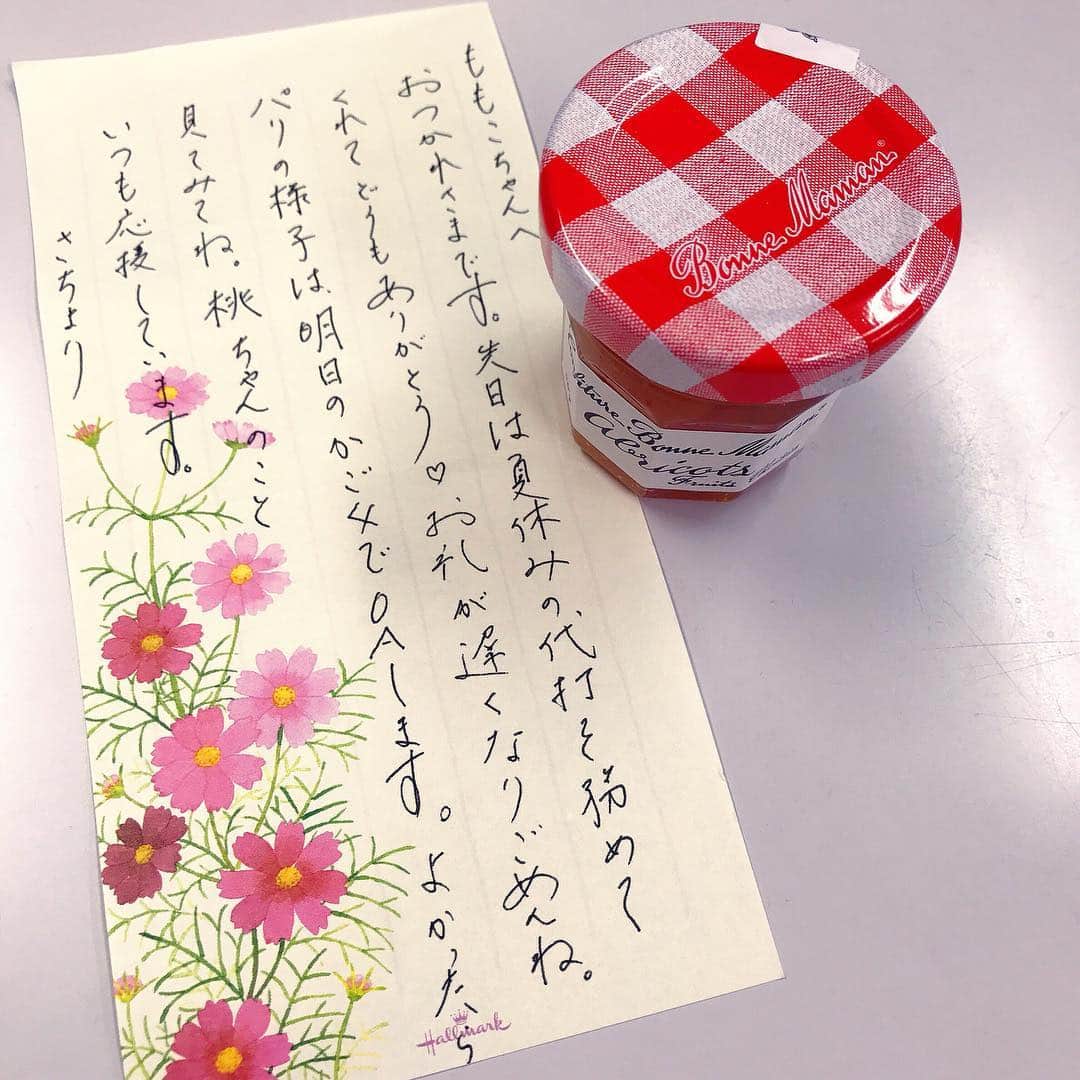 ももこちゃんへ
おつかれさまです。先日は夏休みの代打を務めて
くれてどうもありがとう♡お礼が遅くなりごめんね。
パリの様子は、明日のかご4でOAします。よかったら
見てみてね。桃ちゃんのこと
いつも応援しています。
さちより
Hallmark
Bonne Maman®
Confiture Bonne Maman
Abricots
Fruits